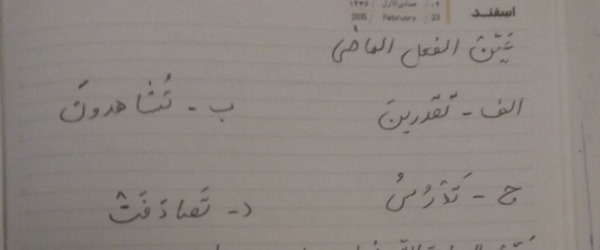 ۴ / جمادی الاول / ۱۴۳۶
اسفند
2015 / February / 23
عَيِّن الفعل الماضی
الف - تَقدرینَ ب - تُشاهدونَ
ج - تَدْرُسُ د - تَصادَفَتْ